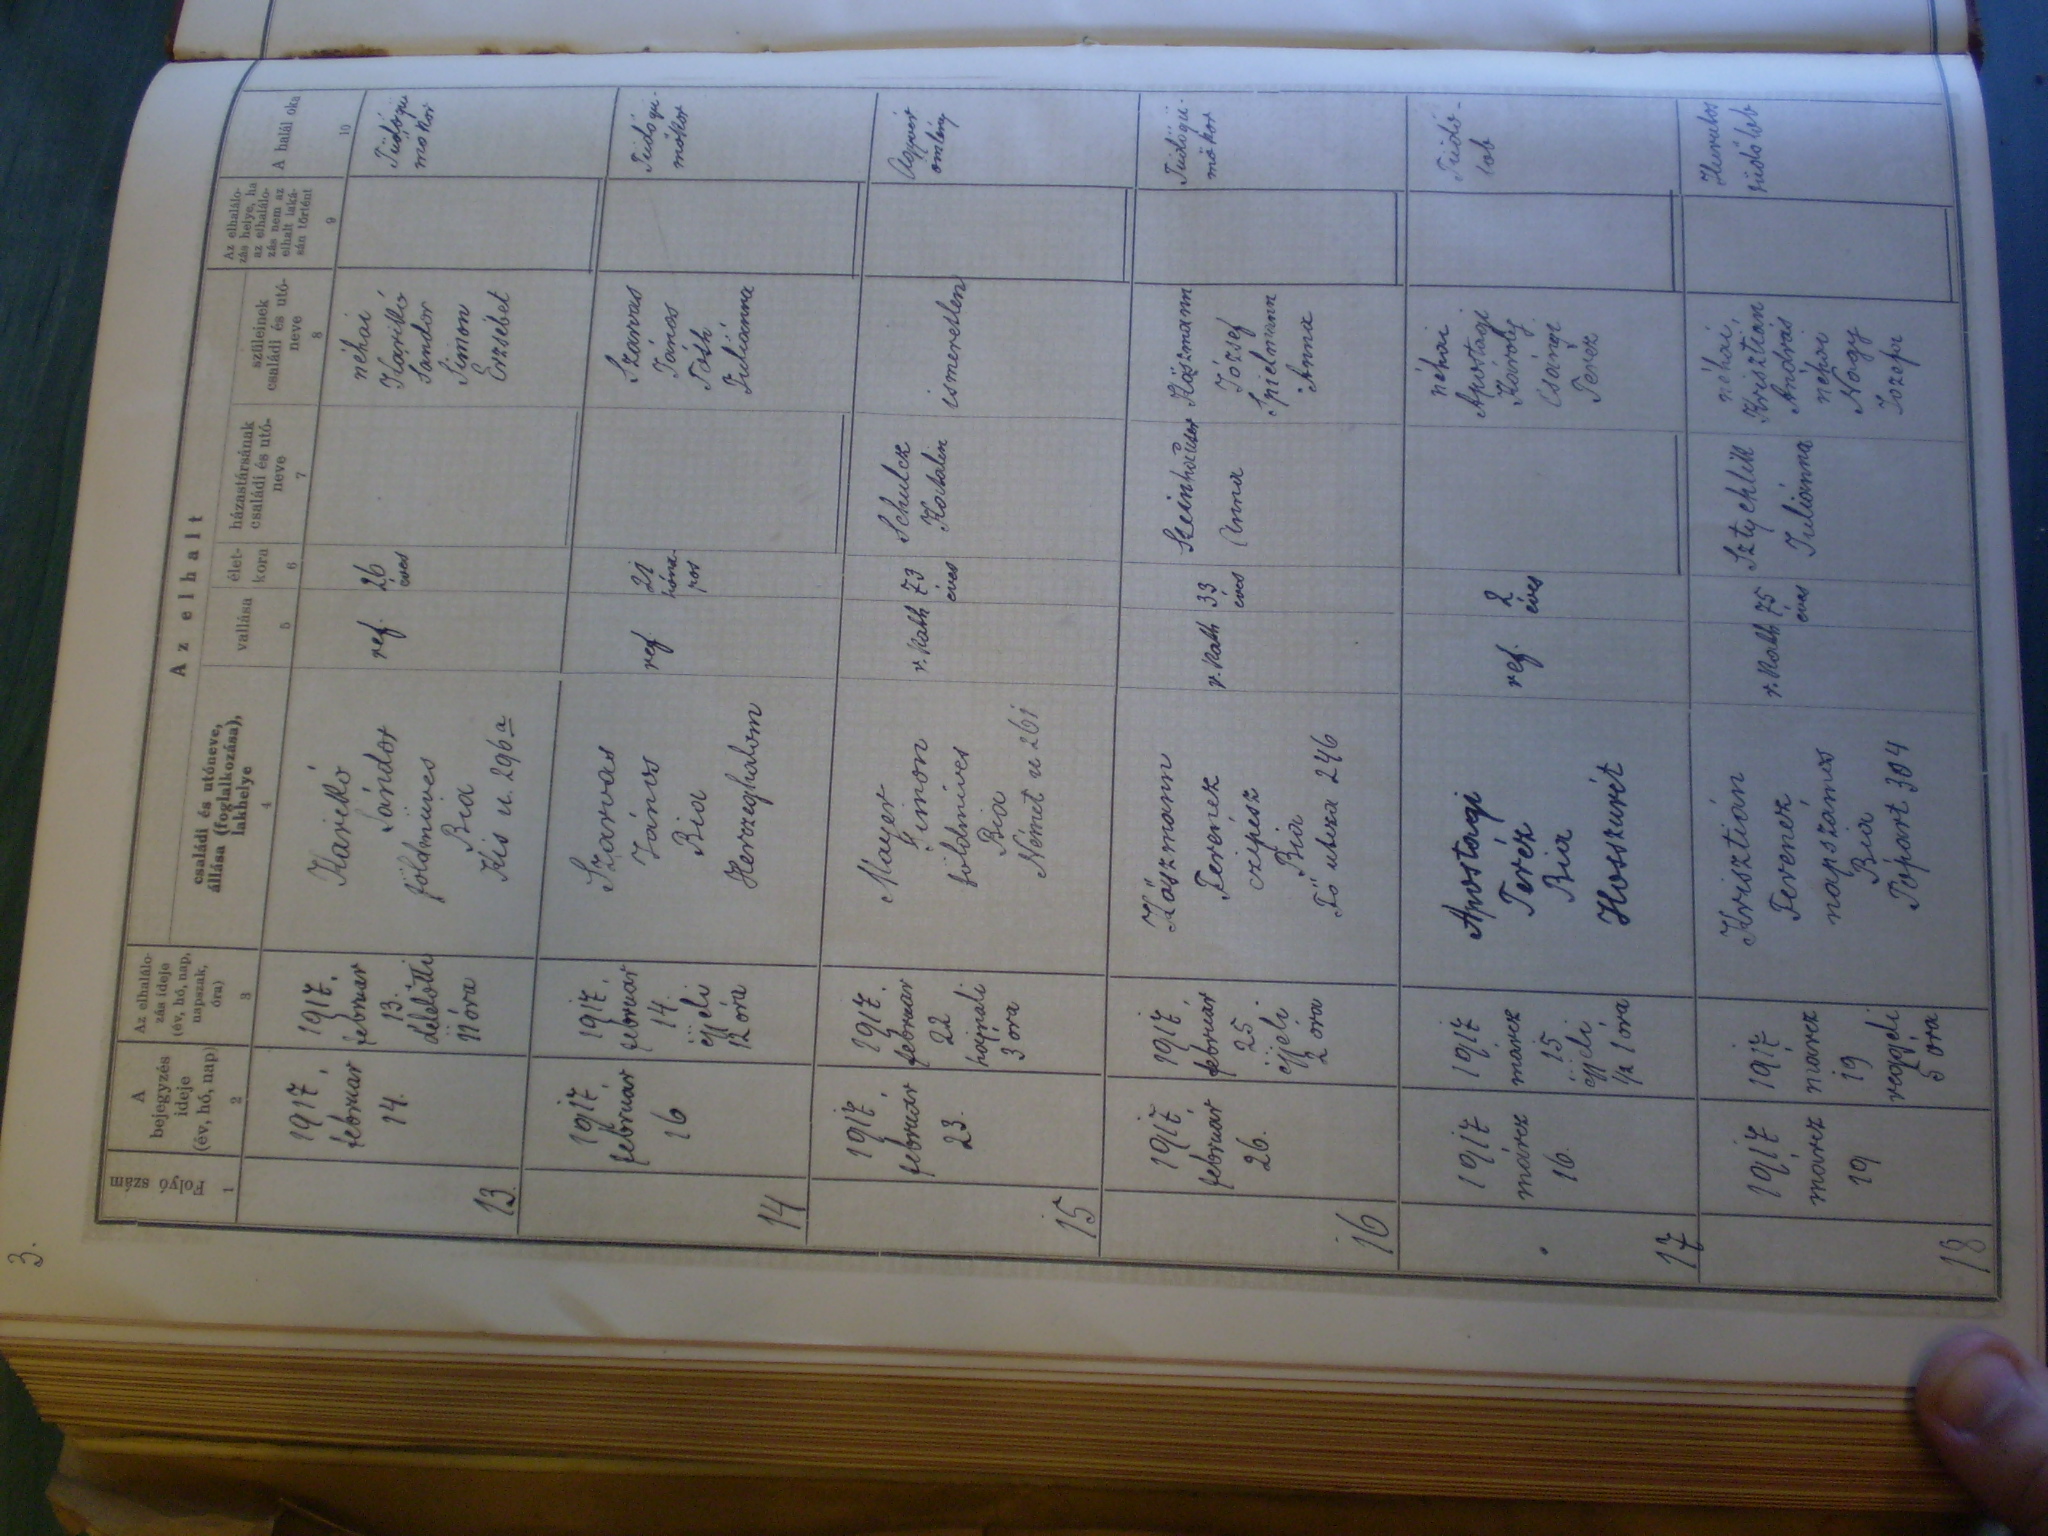 3.
Folyó szám
A
bejegyzés
ideje
(év, hó, nap)
Az elhaláló-
zás ideje
(év, hó, nap,
napszak,
óra)
Az elhalt
családi és utóneve,
állása (foglalkozása),
lakhelye
vallása
élet-
kora
házastársának
családi és utó-
neve
szüleinek
családi és utó-
neve
Az elhaláló-
zás helye, ha
az elhaláló-
zás nem az
elhalt laká-
sán történt
A halál oka
1
2
3
4
5
6
7
8
9
10
13.
1917.
február
14.
1917.
február
13.
délelőtti
11 óra
Karikó
Sándor
földmíves
Bia
Kis u. 296a
ref.
26
éves
néhai
Karikó
Sándor
Simon
Erzsébet
Tüdőgü
mőkór
14
1917.
február
16
1917.
február
14.
éjjeli
12 óra
Szarvas
János
Bia
Herczeghalom
ref
21
hóna
pos
Szarvas
János
Tóth
Julianna
Tüdőgü-
mőkór
15
1917.
február
23.
1917.
február
22
hajnali
3 óra
Mayer
Simon
földmíves
Bia
Német u 261
r. kath
73
éves
Schulcz
Katalin
ismeretlen
16
1917
február
26.
1917
február
25.
éjjeli
2 óra
Kászmann
Ferencz
czipész
Bia
Fő utcza 246
r. kath
33
éves
Steinhauser
Anna
Kászmann
József
Spielmann
Anna
Tüdőgü-
mőkór
17
1917
márcz
16.
1917
márcz
15
éjjeli
1/2 1 óra
Apostagi
Teréz
Bia
Hosszúrét
ref.
2
éves
néhai
Apostagi
Károly
Csánai
Teréz
Tüdő-
lob
18
1917
márcz
19
1917
márcz
19
reggeli
5 óra
Krisztián
Ferencz
napszámos
Bia
Tópart 304
r. kath
75
éves
Sztychlik
Juliánna
néhai
Krisztián
András
néhai
Nagy
Jozefa
Hurutos
tüdőlob